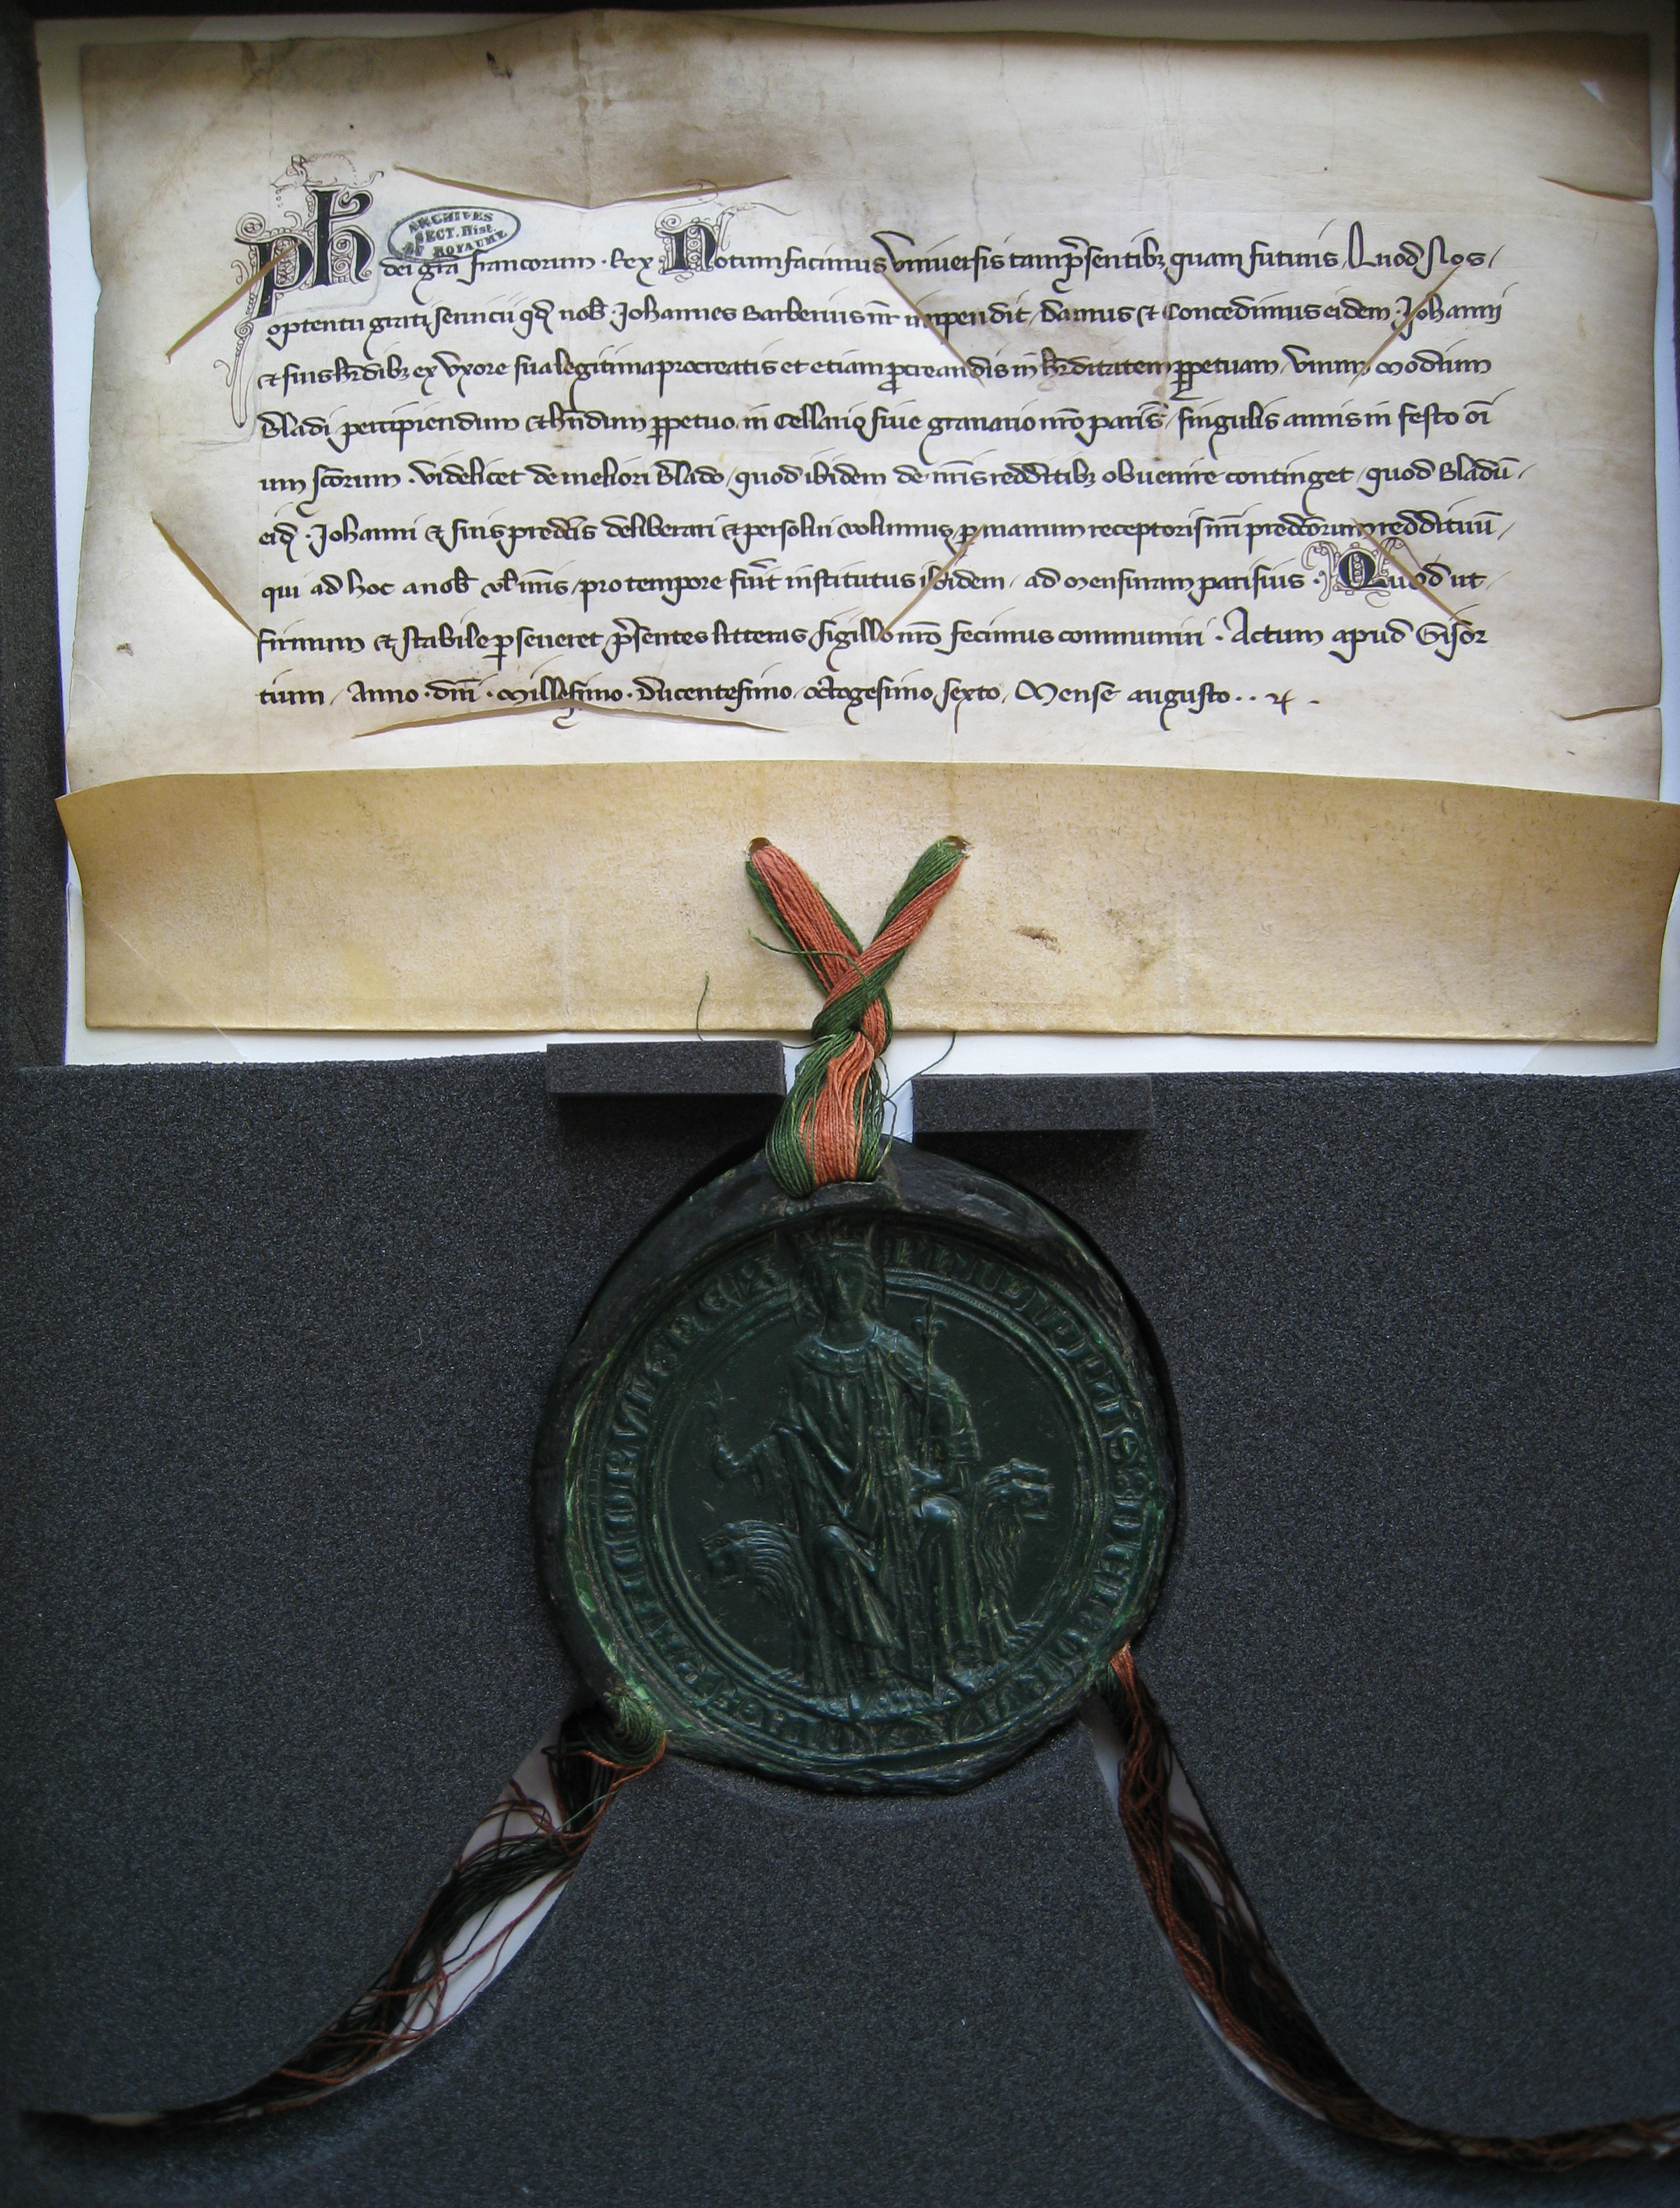 Ph
ARCHIVES
SECT. Hist.
DU ROYAUME
dei gr̄a francorum · Rex · Notum facimus Vniuersis tam p̄sentibꝫ quam futuris, Quod Nos,
optentu grati seruicii qd̄ nob̄ · Johannes Barberius nr̄ impendit, Damus ⁊ Concedimus eidem · Johanni
⁊ suis hr̄dibꝫ ex Vxore sua legitima procreatis et etiam ꝓcreandis in hr̄ditatem ꝑpetuam, Vnum, modium
Bladi percipiendum ⁊ hn̄dum ꝑpetuo, in Cellario siue granario nr̄o paris̄, singulis annis in festo om̄i
um sc̄orum · Videlicet de meliori Blado, quod ibidem de nr̄is redditibꝫ obuenire continget, quod Bladū,
eid̄ · Johanni ⁊ suis predc̄is deliberari ⁊ persolui volumus, ꝑ manum receptoris nr̄i predc̄orum reddituū,
qui ad hoc a nob̄ vl̄ nr̄is, pro tempore fūit institutus ibidem, ad mensuram parisius · Quod ut,
firmum ⁊ stabile ꝑseueret, p̄sentes litteras, sigillo nr̄o fecimus communiri · Actum apud Gisor
tium, Anno · dn̄i · Millesimo · Ducentesimo, octogesimo, sexto, Mense augusto · ·
PHILIPPUS DEI GRACIA FRANCORUM REX